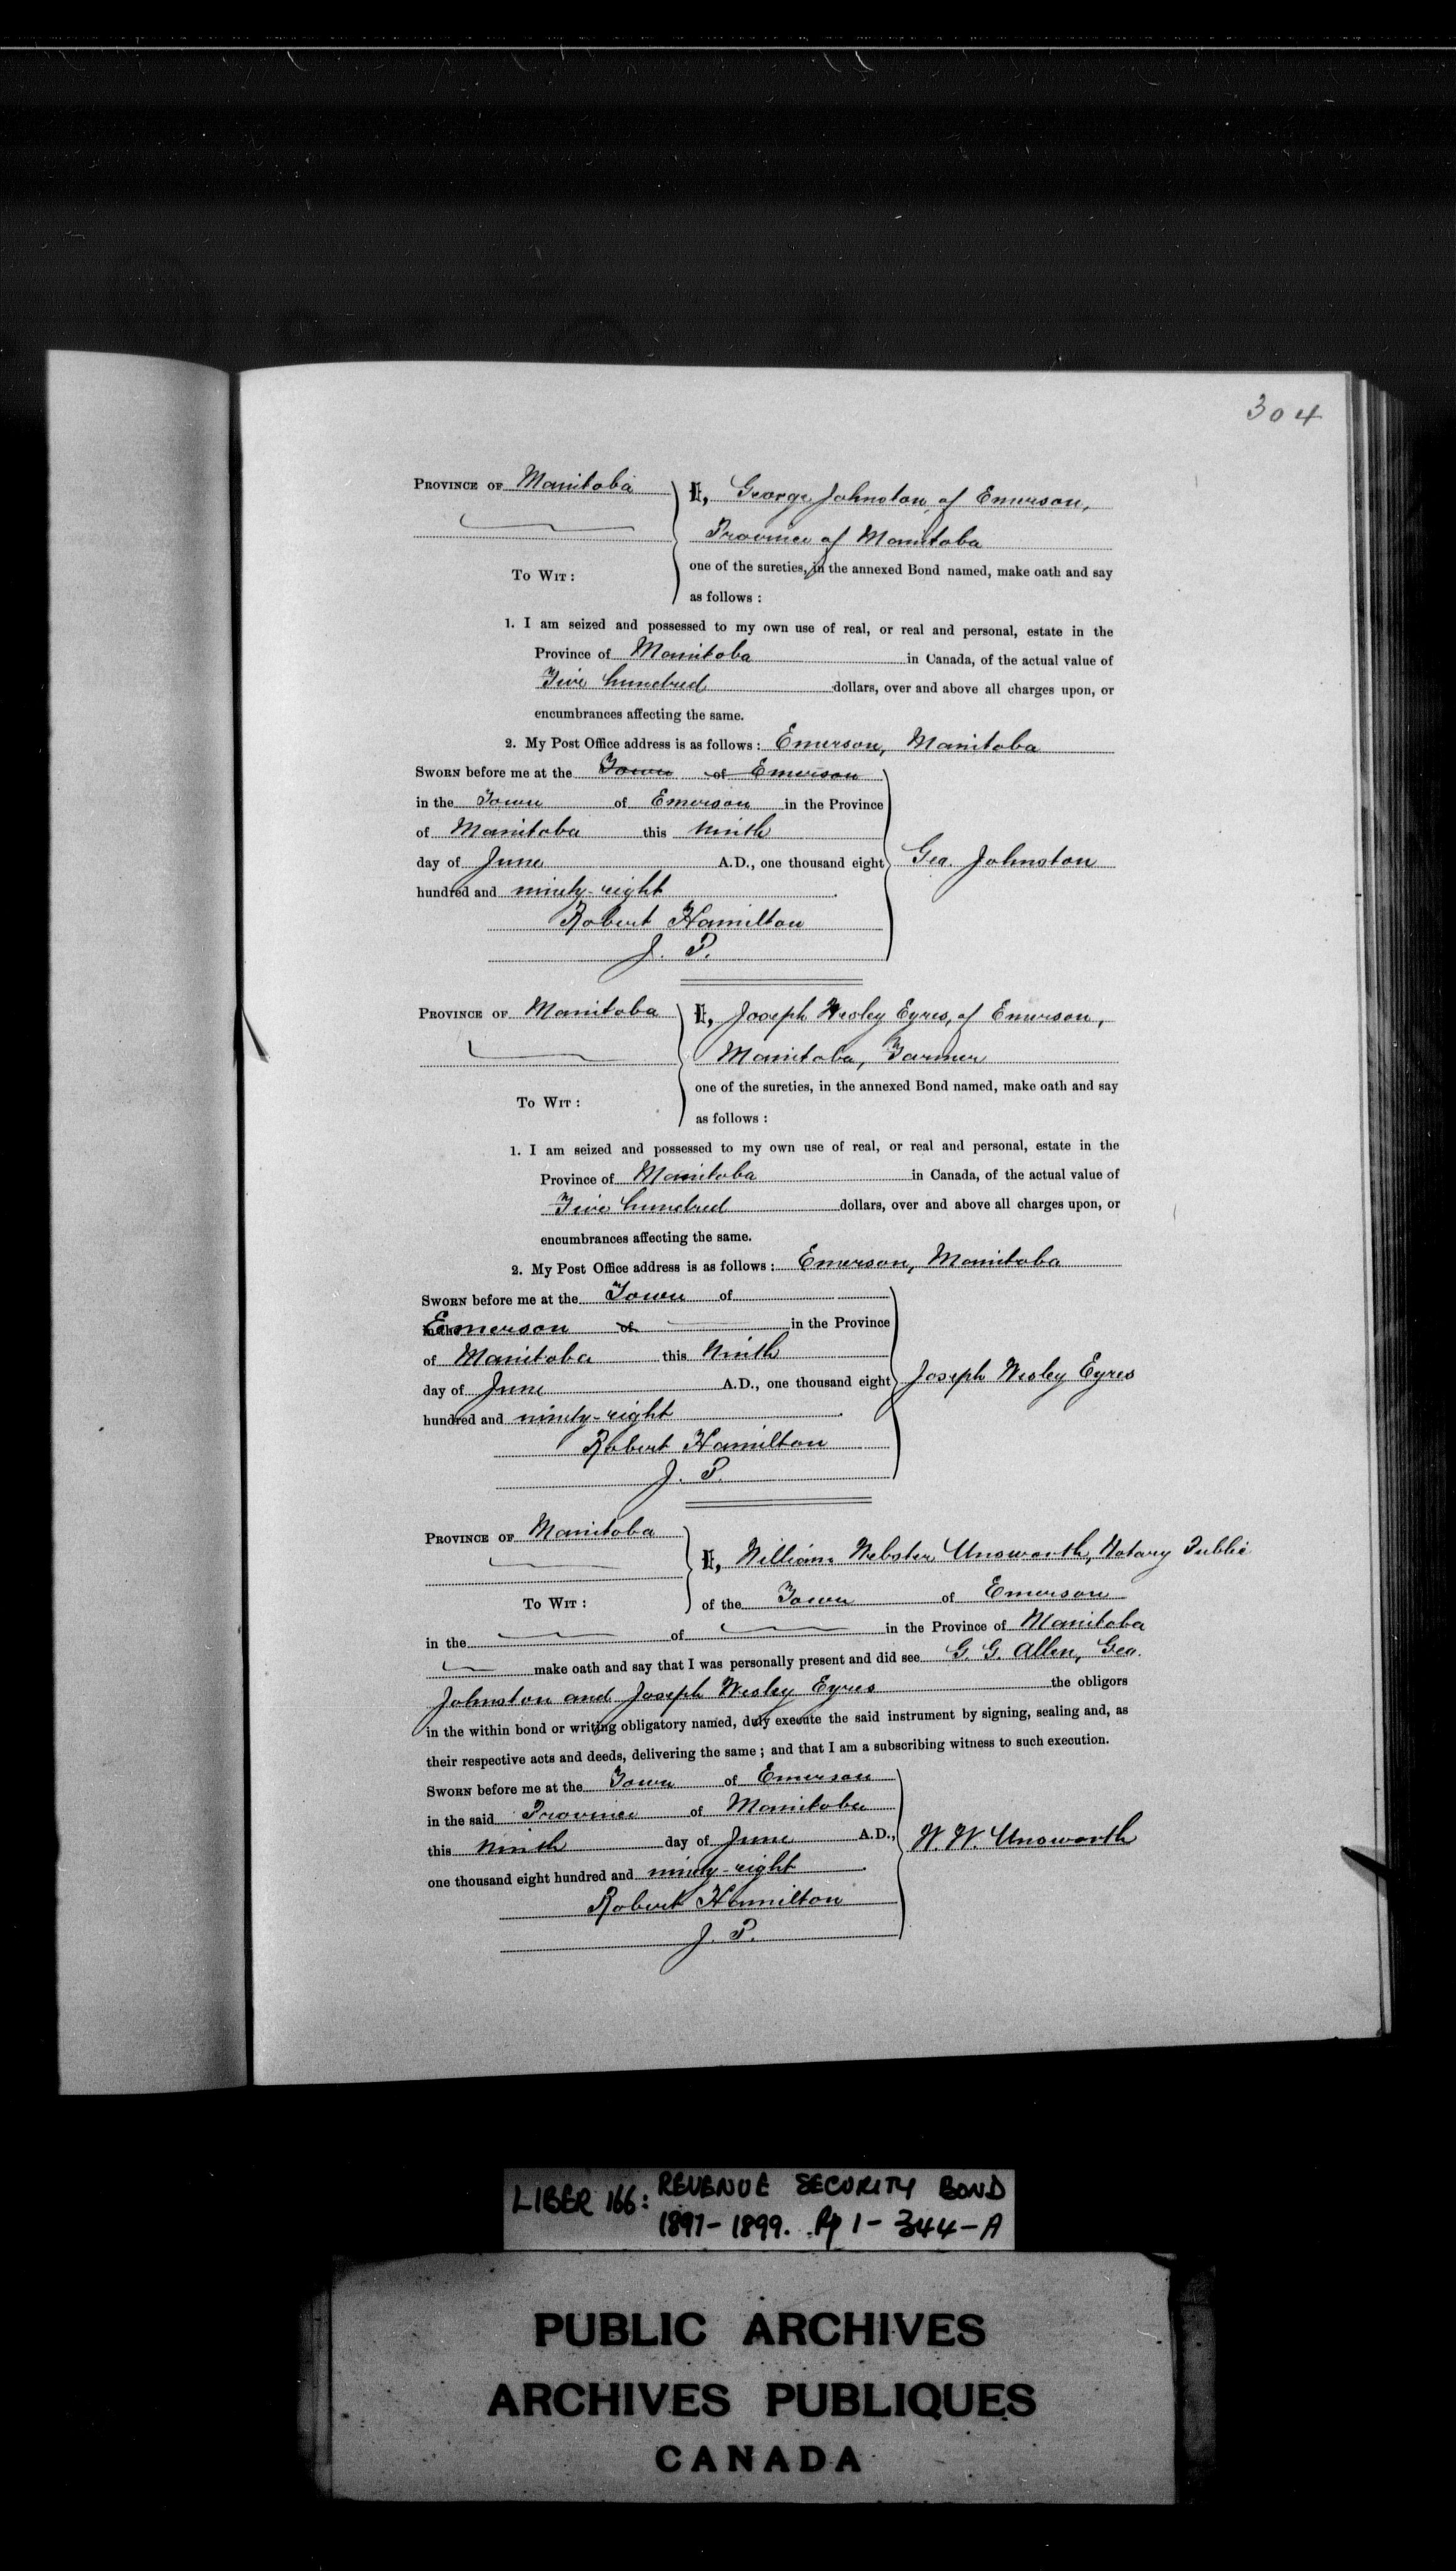 304
PROVINCE OF Manitoba
I, George Johnston, of Emerson,
Province of Manitoba
TO WIT:
one of the sureties, in the annexed Bond named, make oath and say
as follows:
1. I am seized and possessed to my own use of real, or real and personal, estate in the
Province of Manitoba in Canada, of the actual value of
Five hundred dollars, over and above all charges upon, or
encumbrances affecting the same.
2. My Post Office address is as follows: Emerson, Manitoba
SWORN before me at the Town of Emerson
in the Town of Emerson in the Province
of Manitoba this ninth
day of June A.D., one thousand eight
hundred and ninety-eight.
Geo. Johnston
Robert Hamilton
J. P.
PROVINCE OF Manitoba
I, Joseph Wesley Eyres, of Emerson,
Manitoba, Farmer
TO WIT:
one of the sureties, in the annexed Bond named, make oath and say
as follows:
1. I am seized and possessed to my own use of real, or real and personal, estate in the
Province of Manitoba in Canada, of the actual value of
Five hundred dollars, over and above all charges upon, or
encumbrances affecting the same.
2. My Post Office address is as follows: Emerson, Manitoba
SWORN before me at the Town of
Emerson of in the Province
of Manitoba this ninth
day of June A.D., one thousand eight
hundred and ninety-eight.
Joseph Wesley Eyres
Robert Hamilton
J. P.
PROVINCE OF Manitoba
I, William Webster Unsworth, Notary Public
TO WIT:
of the Town of Emerson
in the of in the Province of Manitoba
make oath and say that I was personally present and did see G. G. Allen, Geo.
Johnston and Joseph Wesley Eyres the obligors
in the within bond or writing obligatory named, duly execute the said instrument by signing, sealing and, as
their respective acts and deeds, delivering the same; and that I am a subscribing witness to such execution.
SWORN before me at the Town of Emerson
in the said Province of Manitoba
this ninth day of June A.D.,
one thousand eight hundred and ninety-eight.
W. W. Unsworth
Robert Hamilton
J. P.
LIBER 166: REVENUE SECURITY BOND
1897-1899. Pp 1-344-A
PUBLIC ARCHIVES
ARCHIVES PUBLIQUES
CANADA